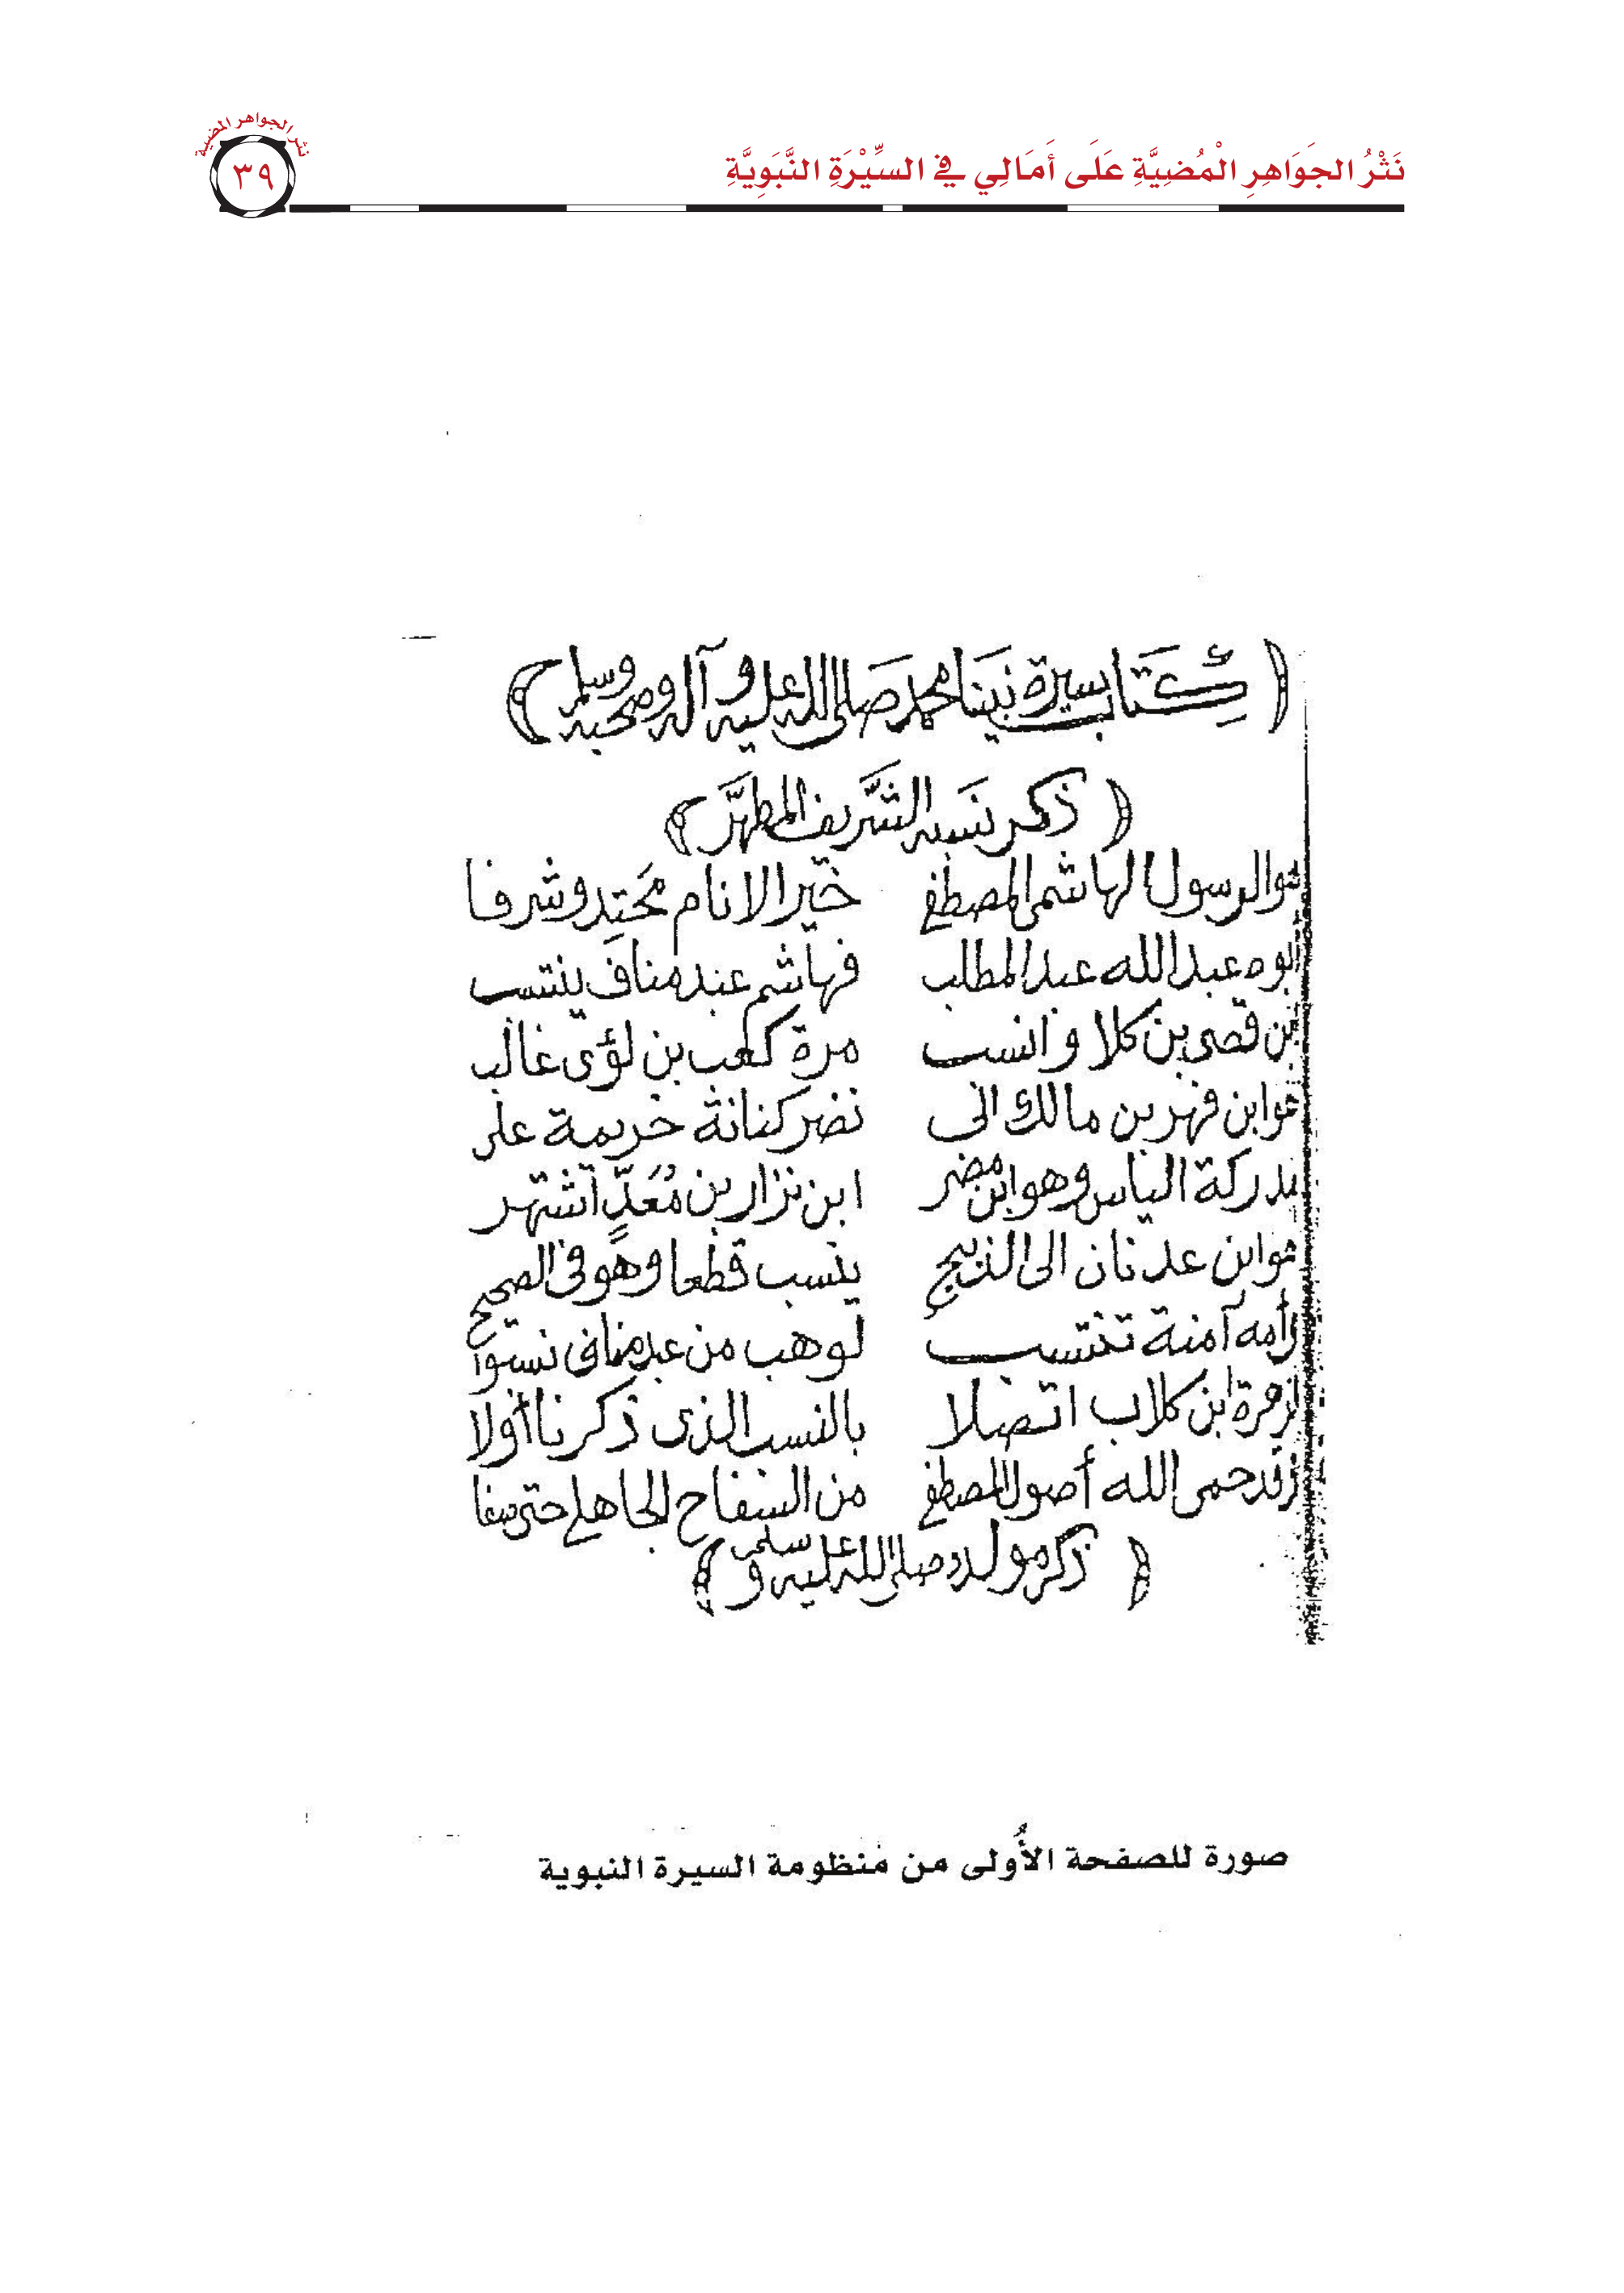 نثر الجواهر المضية
٣٩
نَثْرُ الجَوَاهِرِ الْمُضِيَّةِ عَلَى أَمَالِي فِي السِّيْرَةِ النَّبَوِيَّةِ
﴿ كِتَاب سيرة نبينا محمد صَلى الله عليه و آله وصحبه وسلم ﴾
﴿ ذكر نَسَبه الشَّريف المطهَّر ﴾
هو الرسول الهاشمى المصطفى خَيْر الانام مَحْتِد وشرفا
أبوه عبد الله عبد المطلب فهاشم عبد مناف ينتسب
بن قصى بن كلا و انسب مرة كعب بن لؤى غالب
هو ابن فهر بن مالك الى نضر كنانة خزيمة على
مدركة الياس وهو ابن مضر ابن نزار بن مُعَدٍّ اشتهر
هو ابن عدنان الى الذبيح ينسب قطعا وهو فى الصحيح
وأمه آمنة تنتسب لوهب من عبد مناف نسبوا
لزهرة ابن كلاب اتصلا بالنسب الذى ذكرنا أولا
وقد حمى الله أصول المصطفى من السفاح الجاهلي حتى صفا
﴿ ذكر مولده صلى الله عليه و سلم ﴾
صورة للصفحة الأُولى من منظومة السيرة النبوية